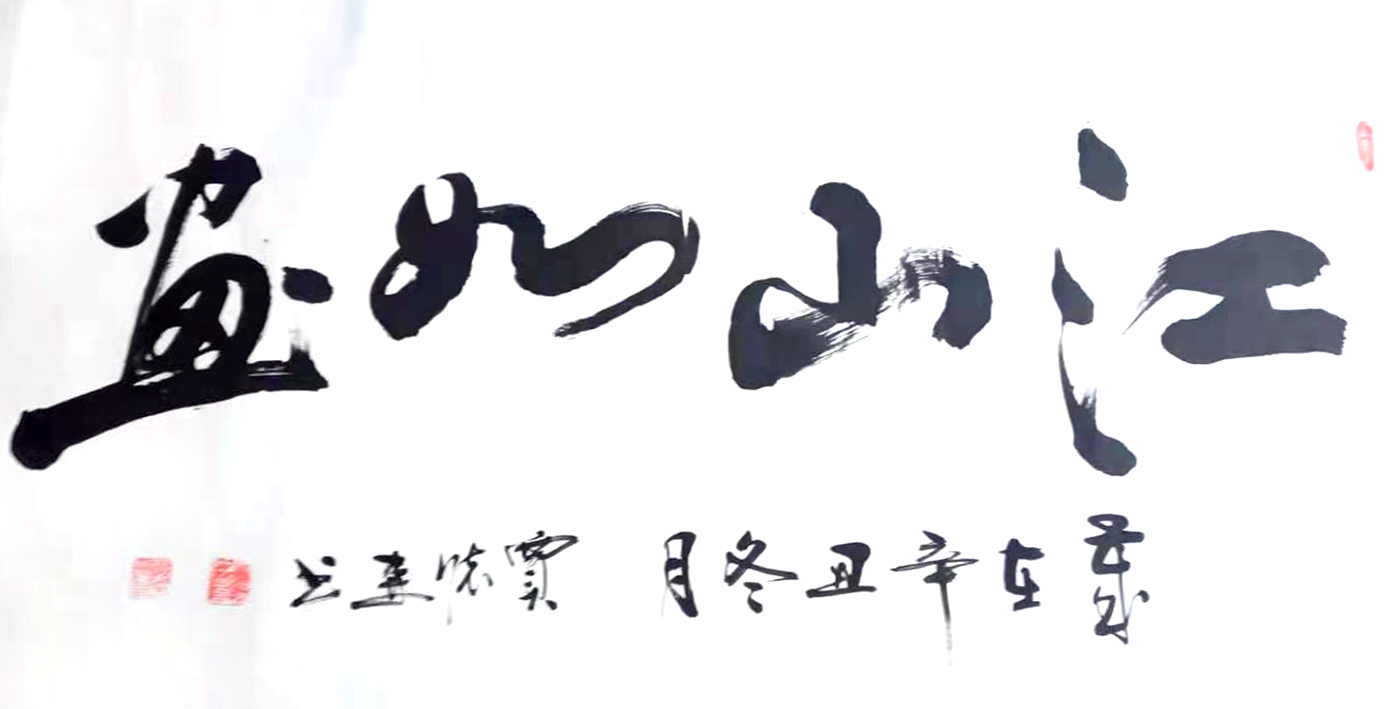 江山如画
岁在辛丑冬月 贾 建书